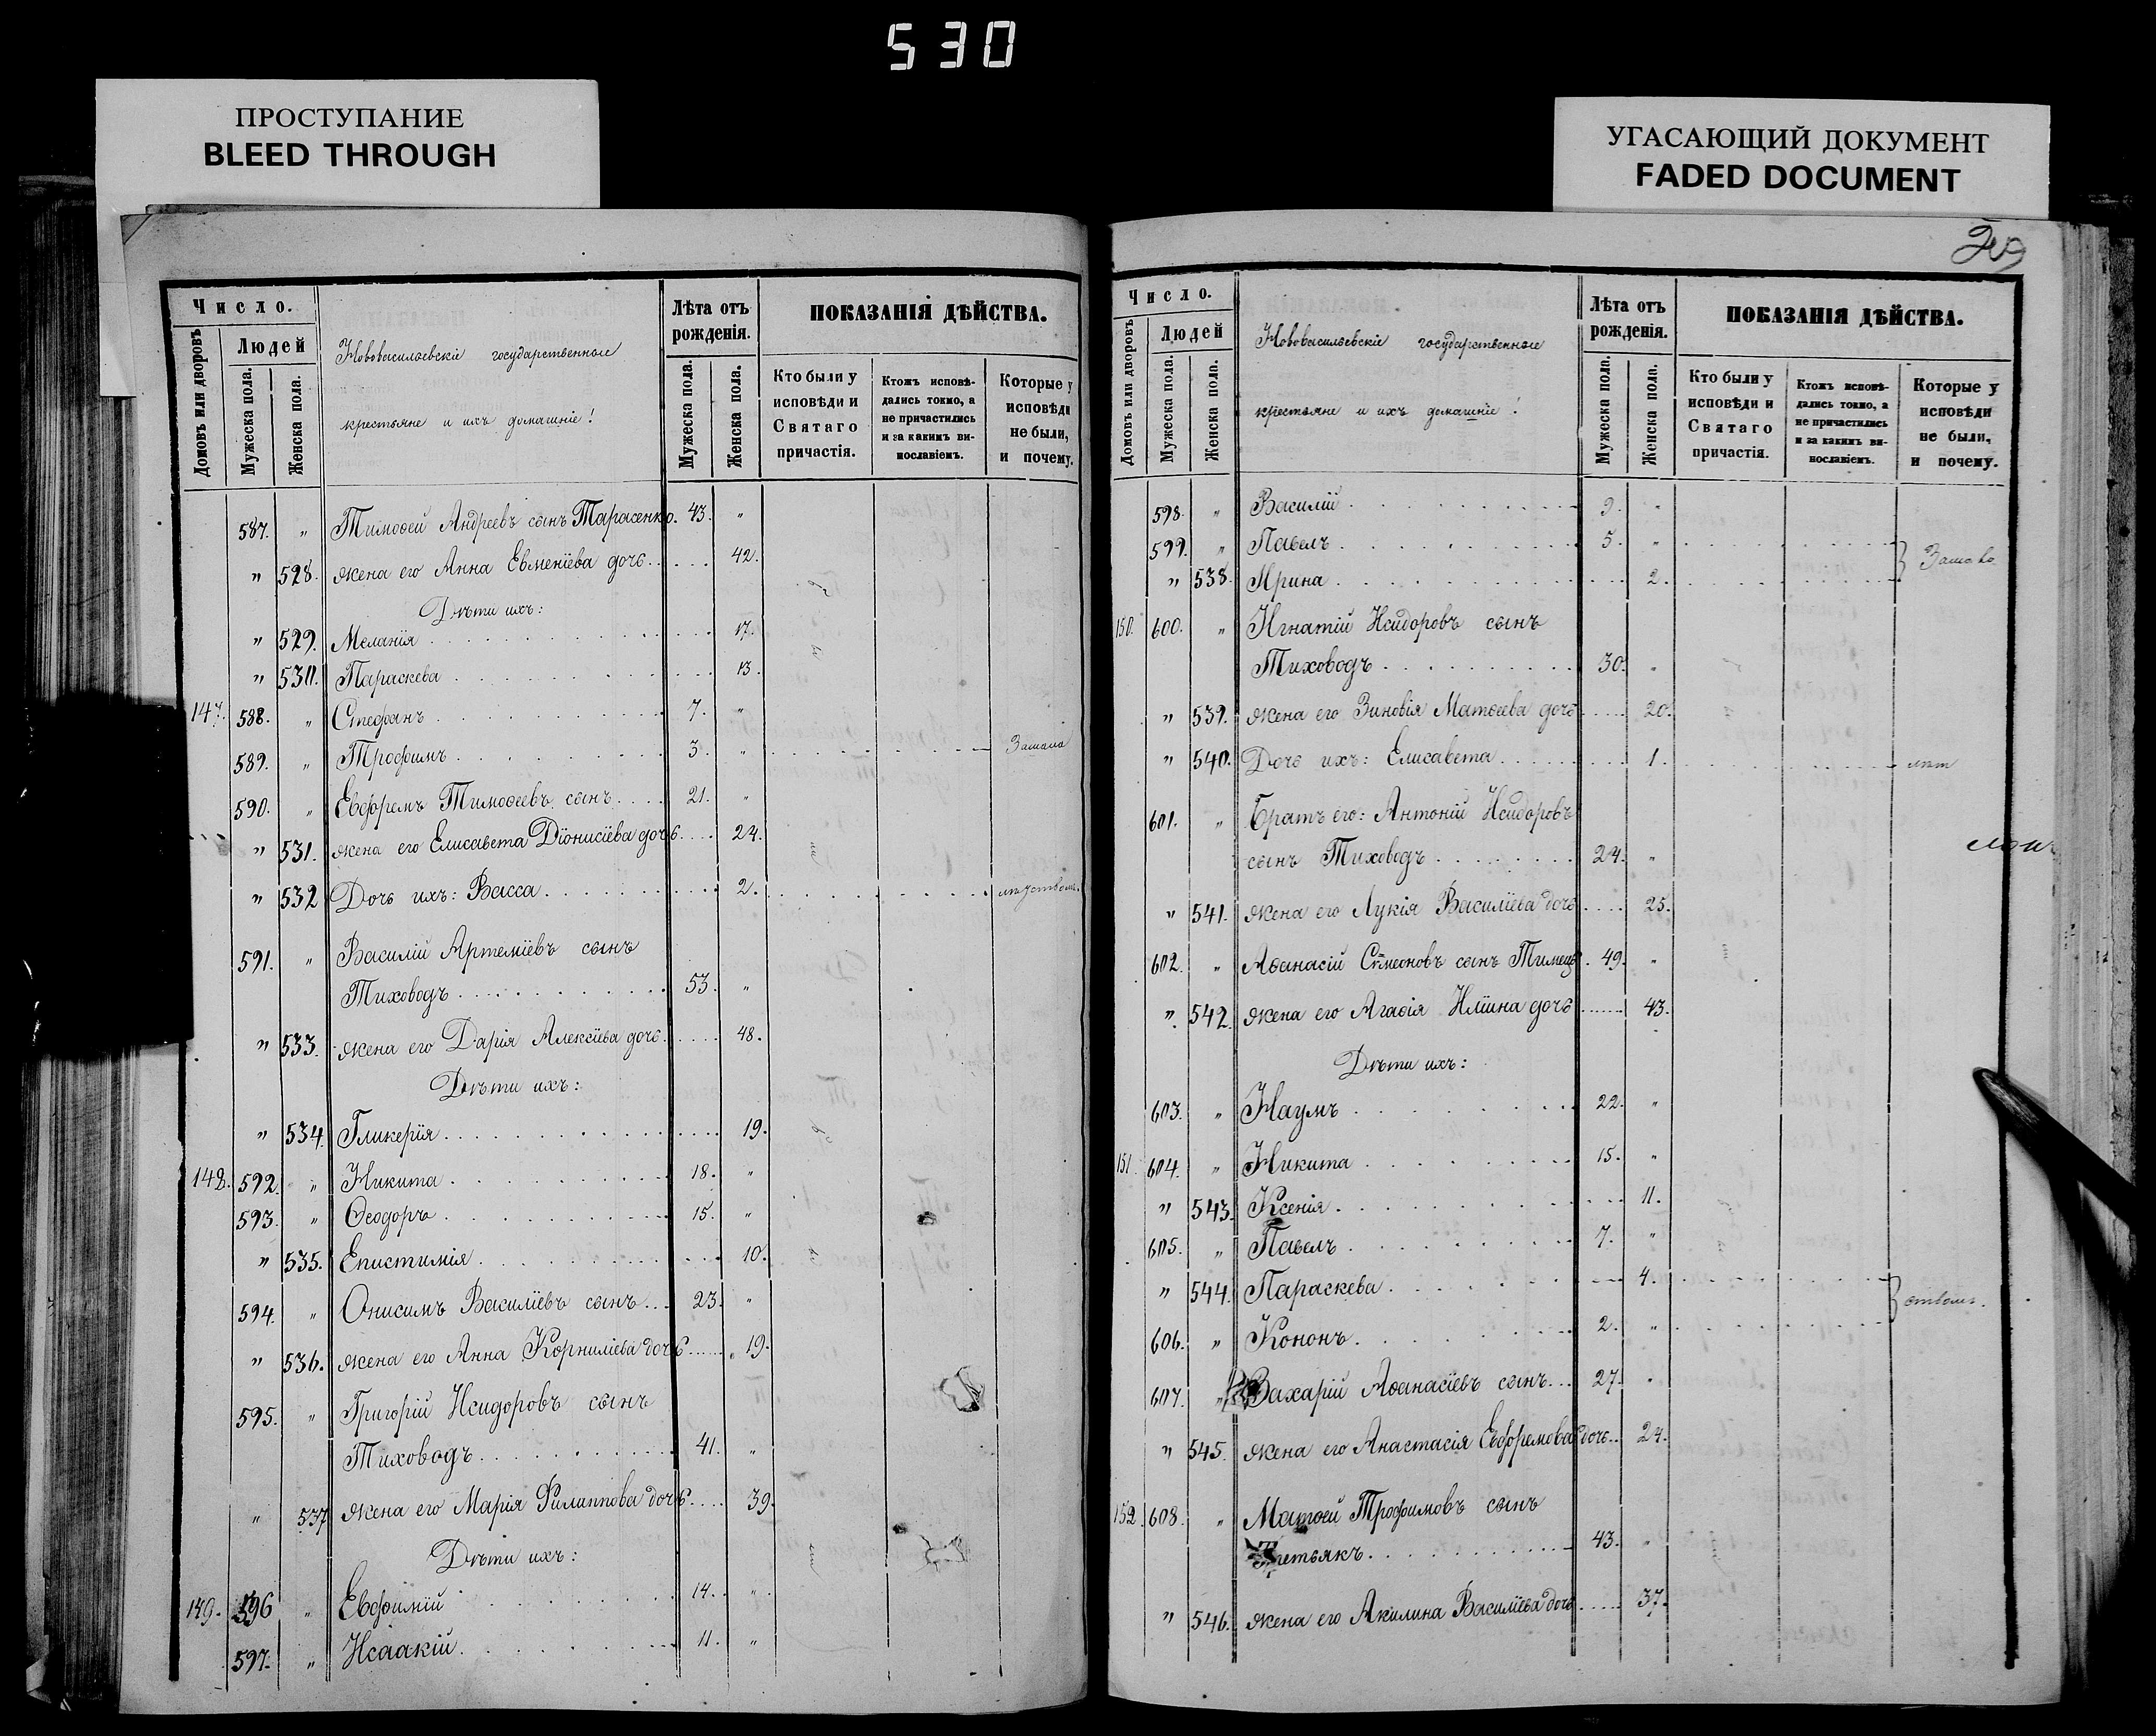 530
ПРОСТУПАНИЕ
BLEED THROUGH
УГАСАЮЩИЙ ДОКУМЕНТ
FADED DOCUMENT
Число.
Домовъ или дворовъ
Людей
Мужеска пола.
Женска пола.
Нововасильевскіе государственные
крестьяне и ихъ домашніе!
Лѣта отъ рожденія.
Мужеска пола.
Женска пола.
ПОКАЗАНІЯ ДѢЙСТВА.
Кто были у исповѣди и Святаго причастія.
Ктожъ исповѣдались токмо, а не причастились и за какимъ винословіемъ.
Которые у исповѣди не были, и почему.
587. " Тимоѳей Андреевъ сынъ Тарасенко. 43. "
" 528. жена его Анна Евменіева дочь 42.
Дѣти ихъ:
" 529. Меланія 17.
" 530. Параскева 13.
147. 588. " Стефанъ 7. "
589. " Трофимъ 3. " Замало
590. " Евфремъ Тимоѳеевъ сынъ 21. "
" 531. жена его Елисавета Діонисіева дочь 24.
" 532 Дочь ихъ: Васса 2.
591. " Василій Артеміевъ сынъ
Тиховодъ 53. "
" 533. жена его Дарія Алексіева дочь 48.
Дѣти ихъ:
" 534. Гликерія 19.
148. 592. " Никита 18. "
593. " Ѳеодоръ 15. "
" 535. Епистимія 10.
594. " Онисимъ Василіевъ сынъ 23. "
" 536. жена его Анна Корниліева дочь 19.
595. " Григорій Исидоровъ сынъ
Тиховодъ 41. "
" 537 жена его Марія Филиппова дочь 39.
Дѣти ихъ:
149. 596 " Евфимій 14. "
597. " Исаакій 11. "
Число.
Домовъ или дворовъ
Людей
Мужеска пола.
Женска пола.
Нововасильевскіе государственные
крестьяне и ихъ домашніе!
Лѣта отъ рожденія.
Мужеска пола.
Женска пола.
ПОКАЗАНІЯ ДѢЙСТВА.
Кто были у исповѣди и Святаго причастія.
Ктожъ исповѣдались токмо, а не причастились и за какимъ винословіемъ.
Которые у исповѣди не были, и почему.
598. " Василій 9. "
599. " Павелъ 5. "
" 538. Ирина 2.
150. 600. " Игнатій Исидоровъ сынъ
Тиховодъ 30. "
" 539. жена его Зиновія Матѳеева дочь 20.
" 540. Дочь ихъ: Елисавета 1.
601. " Братъ его: Антоній Исидоровъ
сынъ Тиховодъ 24. "
" 541. жена его Лукія Василіева дочь 25.
602. " Аѳанасій Сѷмеоновъ сынъ Тимецъ 49. "
" 542. жена его Агаѳія Иліина дочь 43.
Дѣти ихъ:
603. " Наумъ 22. "
151. 604. " Никита 15. "
" 543. Ксенія 11.
605. " Павелъ 7. "
" 544. Параскева 4.
606. " Кононъ 2. "
ствомъ.
607. " Захарій Аѳанасіевъ сынъ 27. "
" 545. жена его Анастасія Евфремова дочь 24.
152. 608. " Матѳей Трофимовъ сынъ
Третьякъ 43. "
" 546. жена его Акилина Василіева дочь 37.